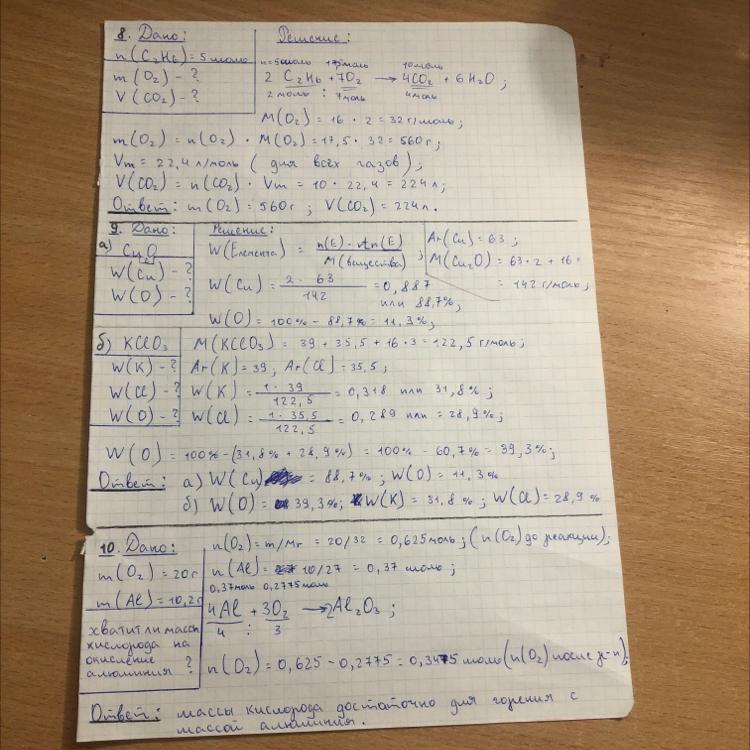 8. Дано:
Решение:
n(C₂H₆) = 5 моль
m(O₂) - ?
V(CO₂) - ?
n=5моль 17,5моль 10моль
2 C₂H₆ + 7O₂ → 4CO₂ + 6H₂O ;
2моль : 7моль 4моль
M(O₂) = 16 · 2 = 32 г/моль ;
m(O₂) = n(O₂) · M(O₂) = 17,5 · 32 = 560 г ;
Vm = 22,4 л/моль ( для всех газов) ;
V(CO₂) = n(CO₂) · Vm = 10 · 22,4 = 224 л ;
Ответ: m(O₂) = 560 г ; V(CO₂) = 224 л .
9. Дано:
Решение:
а) Cu₂O
W(Cu) - ?
W(O) - ?
W(Элемента) = n(Е) · Ar(Е) / M(вещества) ;
Ar(Cu) = 63 ;
M(Cu₂O) = 63 · 2 + 16 =
= 142 г/моль ;
W(Cu) = 2 · 63 / 142 = 0,887
или 88,7% ;
W(O) = 100% - 88,7% = 11,3% ;
б) KClO₃
W(K) - ?
W(Cl) - ?
W(O) - ?
M(KClO₃) = 39 + 35,5 + 16 · 3 = 122,5 г/моль ;
Ar(K) = 39 ; Ar(Cl) = 35,5 ;
W(K) = 1 · 39 / 122,5 = 0,318 или 31,8% ;
W(Cl) = 1 · 35,5 / 122,5 = 0,289 или = 28,9% ;
W(O) = 100% - (31,8% + 28,9%) = 100% - 60,7% = 39,3% ;
Ответ: а) W(Cu) = 88,7% ; W(O) = 11,3%
б) W(O) = 39,3% ; W(K) = 31,8% ; W(Cl) = 28,9%
10. Дано:
m(O₂) = 20 г
m(Al) = 10,2г
хватит ли массы
кислорода на
окисление
алюминия ?
n(O₂) = m/Mr = 20/32 = 0,625 моль ; (n(O₂) до реакции) ;
n(Al) = 10/27 = 0,37 моль ;
0,37моль 0,2775моль
4Al + 3O₂ → 2Al₂O₃ ;
4 : 3
n(O₂) = 0,625 - 0,2775 = 0,3475 моль (n(O₂) после р-и) ;
Ответ: массы кислорода достаточно для горения с
массой алюминия .